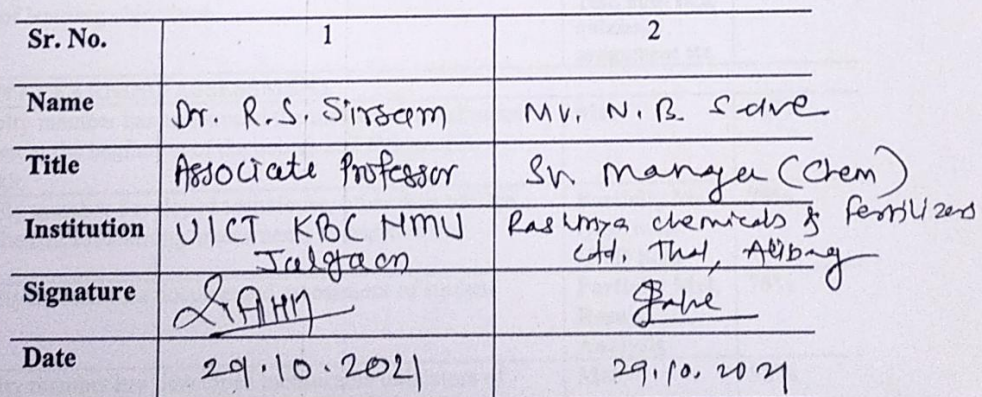 Sr. No. 1 2
Name Dr. R. S. Sirsam Mr. N. B. Sarve
Title Associate Professor Sr. Manager (Chem)
Institution UICT KBC NMU Rashtriya chemicals & Fertilizers
Jalgaon Ltd. Thal, Alibag
Signature
Date 29.10.2021 29.10.2021